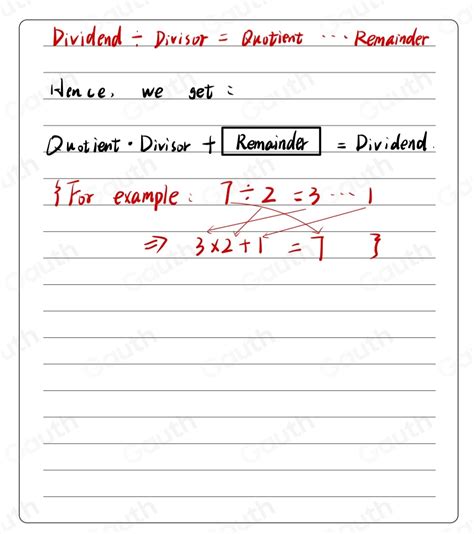 Dividend ÷ Divisor = Quotient ··· Remainder
Hence, we get :
Quotient · Divisor + Remainder = Dividend.
{For example : 7 ÷ 2 = 3 ··· 1
⇒ 3×2+1 = 7 }
Gauth